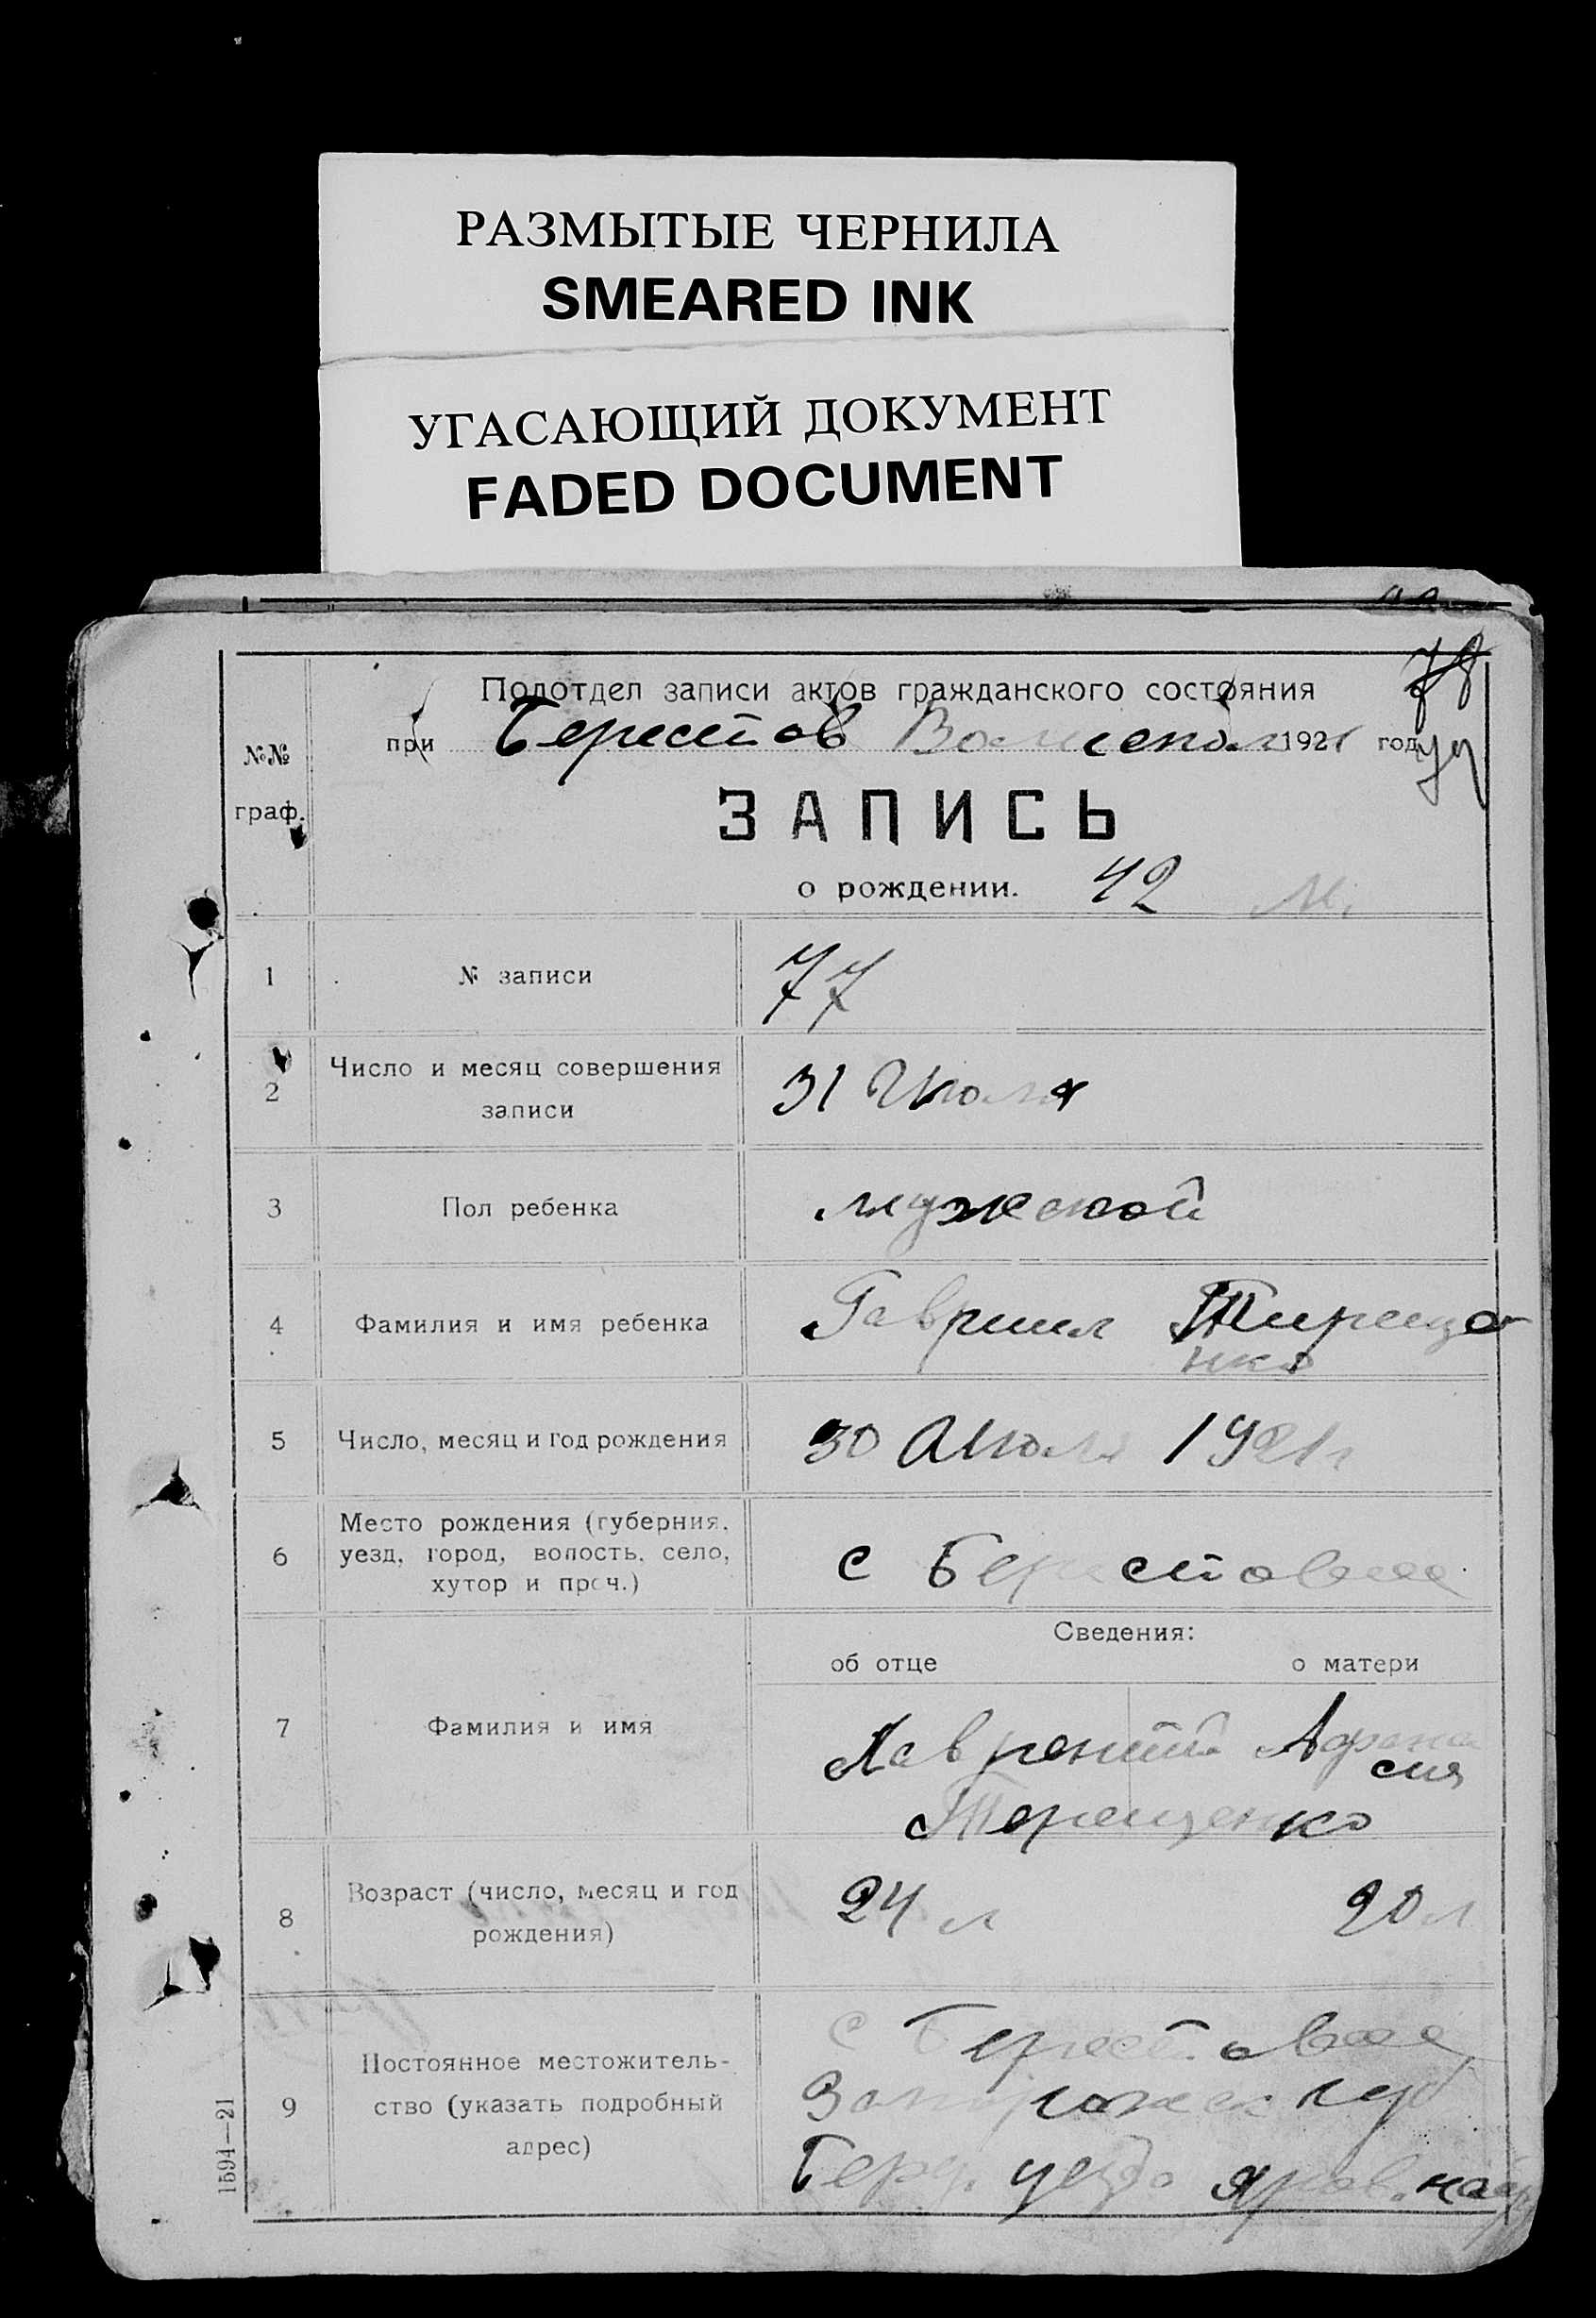 РАЗМЫТЫЕ ЧЕРНИЛА
SMEARED INK
УГАСАЮЩИЙ ДОКУМЕНТ
FADED DOCUMENT
78
Подотдел записи актов гражданского состояния
при Берестов 1921 год
№№
граф.
ЗАПИСЬ
о рождении. 42 М.
1 № записи 77
2 Число и месяц совершения
записи
31 Июля
3 Пол ребенка мужской
4 Фамилия и имя ребенка Гавриил Тиреще
нко
5 Число, месяц и год рождения 30 Июля 1921 г
6 Место рождения (губерния,
уезд, город, волость, село,
хутор и проч.)
с Берестовое
Сведения:
об отце о матери
7 Фамилия и имя
Лаврентий Афана
сия
Терещенко
8 Возраст (число, месяц и год
рождения)
24 л 20 л
9 Постоянное местожитель-
ство (указать подробный
адрес)
с Берестовое
Запорожск губ
Берд. уезда
1594—21